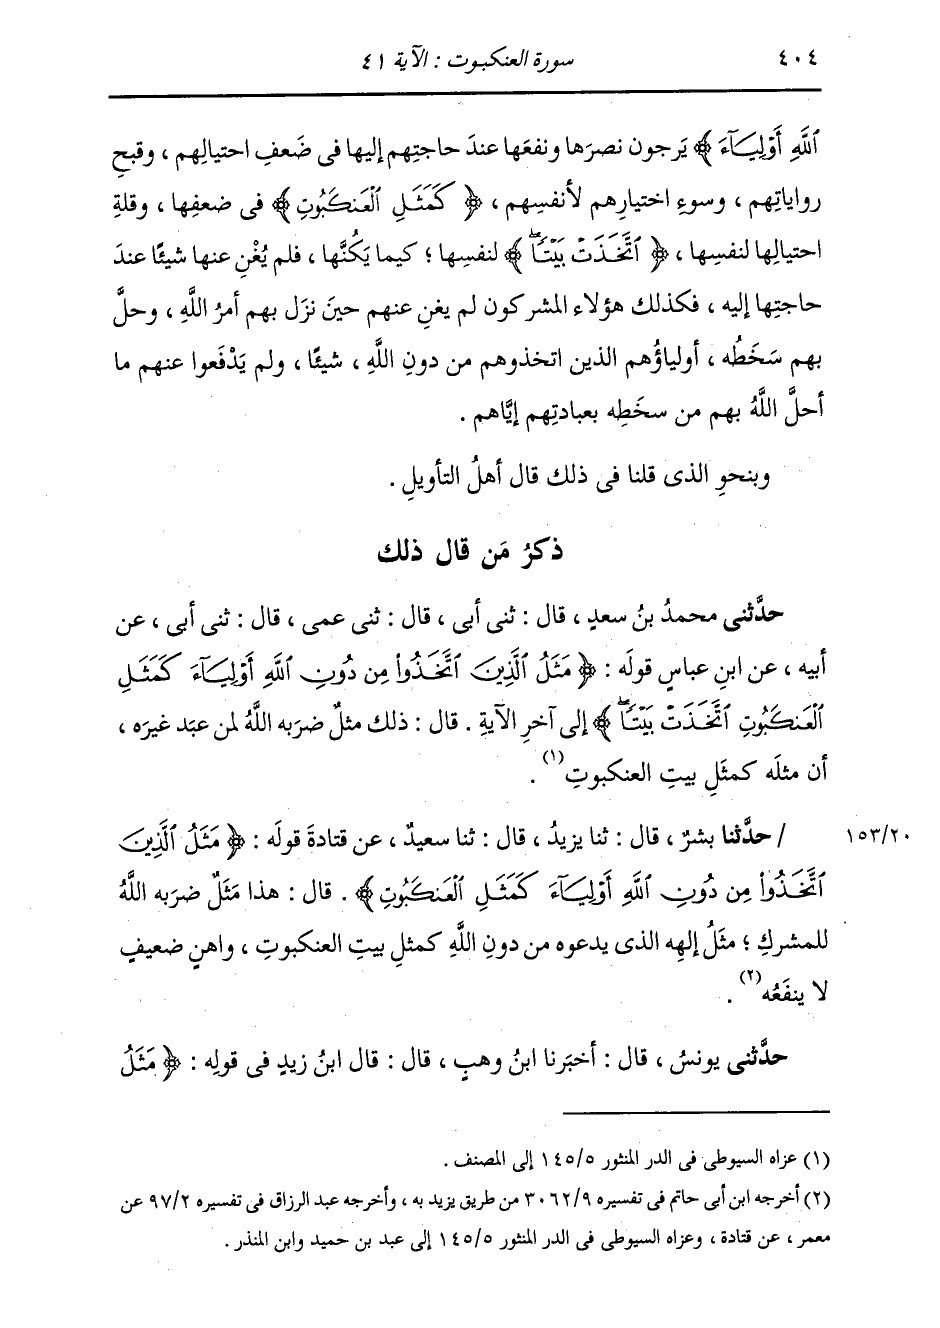 ٤٠٤ سورة العنكبوت : الآية ٤١
ٱللَّهِ أَوْلِيَآءَ﴾ يَرجون نصرَها ونفعَها عندَ حاجتِهم إليها فى ضَعفِ احتيالِهم ، وقبحِ
رواياتِهم ، وسوءِ اختيارِهم لأنفسِهم ، ﴿كَمَثَلِ ٱلْعَنكَبُوتِ﴾ فى ضعفِها ، وقلةِ
احتيالِها لنفسِها ، ﴿ٱتَّخَذَتْ بَيْتًاۖ﴾ لنفسِها ؛ كيما يَكُنَّها ، فلم يُغْنِ عنها شيئًا عندَ
حاجتِها إليه ، فكذلك هؤلاء المشركون لم يغنِ عنهم حينَ نزَل بهم أمرُ اللَّهِ ، وحلَّ
بهم سَخَطُه ، أولياؤُهم الذين اتخذوهم من دونِ اللَّهِ ، شيئًا ، ولم يَدْفَعوا عنهم ما
أحلَّ اللَّهُ بهم من سخَطِه بعبادتِهم إيَّاهم .
وبنحوِ الذى قلنا فى ذلك قال أهلُ التأويلِ .
ذكرُ مَن قال ذلك
حدَّثنى محمدُ بنُ سعدٍ ، قال : ثنى أبى ، قال : ثنى عمى ، قال : ثنى أبى ، عن
أبيه ، عن ابنِ عباسٍ قولَه : ﴿مَثَلُ ٱلَّذِينَ ٱتَّخَذُوا۟ مِن دُونِ ٱللَّهِ أَوْلِيَآءَ كَمَثَلِ
ٱلْعَنكَبُوتِ ٱتَّخَذَتْ بَيْتًاۖ﴾ إلى آخرِ الآيةِ . قال : ذلك مثلٌ ضرَبه اللَّهُ لمن عبَد غيرَه ،
أن مثلَه كمثَلِ بيتِ العنكبوتِ(١) .
١٥٣/٢٠ / حدَّثنا بشرٌ ، قال : ثنا يزيدُ ، قال : ثنا سعيدٌ ، عن قتادةَ قولَه : ﴿مَثَلُ ٱلَّذِينَ
ٱتَّخَذُوا۟ مِن دُونِ ٱللَّهِ أَوْلِيَآءَ كَمَثَلِ ٱلْعَنكَبُوتِ﴾ . قال : هذا مَثَلٌ ضرَبه اللَّهُ
للمشركِ ؛ مثَلُ إلهِه الذى يدعوه من دونِ اللَّهِ كمثلِ بيتِ العنكبوتِ ، واهنٍ ضعيفٍ
لا ينفَعُه(٢) .
حدَّثنى يونسُ ، قال : أخبَرنا ابنُ وهبٍ ، قال : قال ابنُ زيدٍ فى قولِه : ﴿مَثَلُ
(١) عزاه السيوطى فى الدر المنثور ١٤٥/٥ إلى المصنف .
(٢) أخرجه ابن أبى حاتم فى تفسيره ٣٠٦٢/٩ من طريق يزيد به ، وأخرجه عبد الرزاق فى تفسيره ٩٧/٢ عن
معمر ، عن قتادة ، وعزاه السيوطى فى الدر المنثور ١٤٥/٥ إلى عبد بن حميد وابن المنذر .